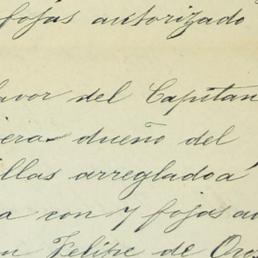 fojas autorizado
favor del Capitan
dueño del
illas arreglados
a con 7 fojas au
n Felipe de Oro